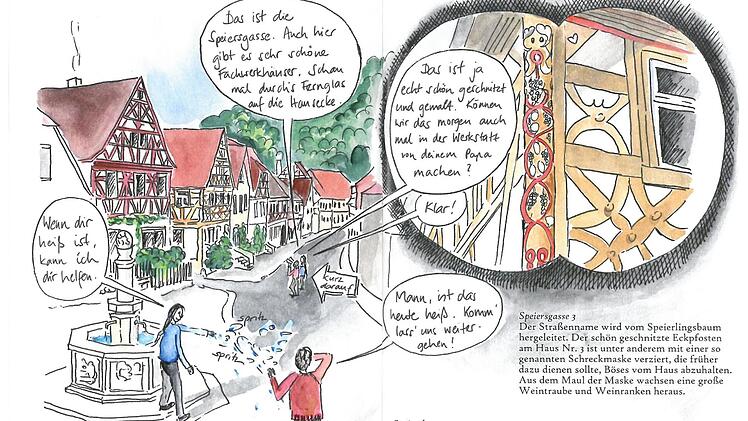 Das ist die
Speiersgasse. Auch hier
gibt es sehr schöne
Fachwerkhäuser. Schau
mal durch's Fernglas
auf die Hausecke.
Das ist ja
echt schön geschnitzt
und gemalt. Können
wir das morgen auch
mal in der Werkstatt
von deinem Papa
machen?
Klar!
Wenn dir
heiß ist,
kann ich
dir helfen.
kurz
darauf
Mann, ist das
heute heiß. Komm'
lass' uns weiter-
gehen!
spritz
spritz
Speiersgasse 3
Der Straßenname wird vom Speierlingsbaum
hergeleitet. Der schön geschnitzte Eckpfosten
am Haus Nr. 3 ist unter anderem mit einer so
genannten Schreckmaske verziert, die früher
dazu dienen sollte, Böses vom Haus abzuhalten.
Aus dem Maul der Maske wachsen eine große
Weintraube und Weinranken heraus.